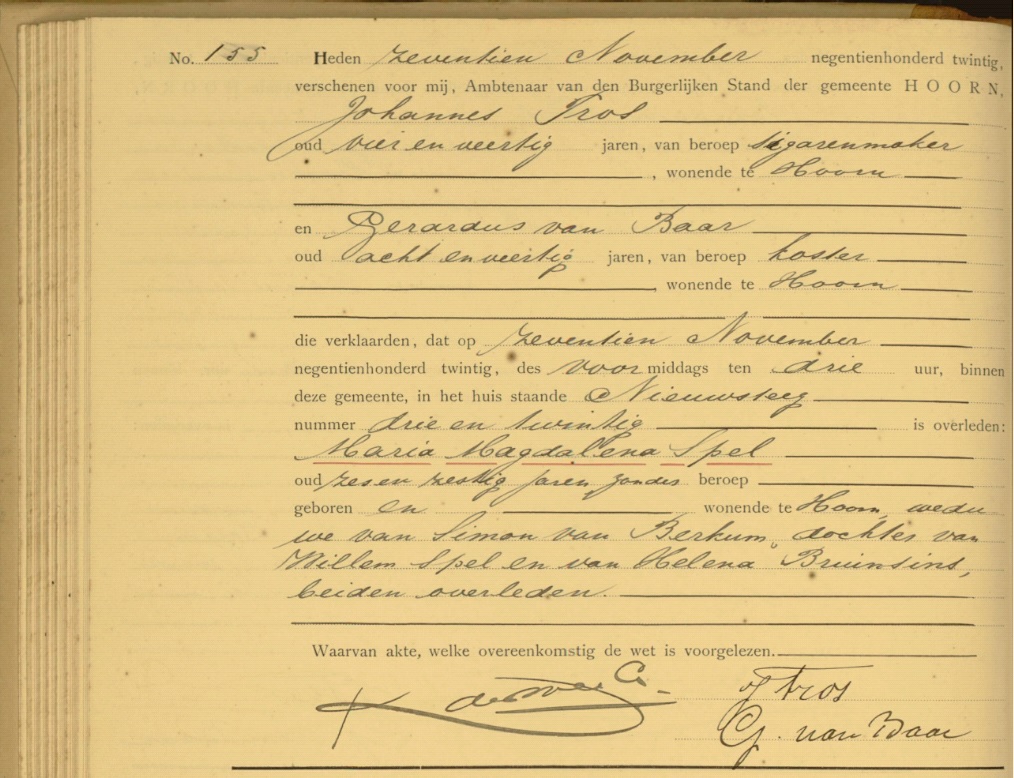 No. 155 Heden zeventien November negentienhonderd twintig,
verschenen voor mij, Ambtenaar van den Burgerlijken Stand der gemeente HOORN,
Johannes Tros
oud vier en veertig jaren, van beroep sigarenmaker
, wonende te Hoorn
en Gerardus van Baar
oud acht en veertig jaren, van beroep koster
, wonende te Hoorn
die verklaarden, dat op zeventien November
negentienhonderd twintig, des voormiddags ten drie uur, binnen
deze gemeente, in het huis staande Nieuwsteeg
nummer drie en twintig is overleden:
Maria Magdalena Spel
oud zes en zestig jaren zonder beroep
geboren en wonende te Hoorn, wedu
we van Simon van Berkum, dochter van
Willem Spel en van Helena Bruinsins,
beiden overleden.
Waarvan akte, welke overeenkomstig de wet is voorgelezen.
J Tros
G. van Baar